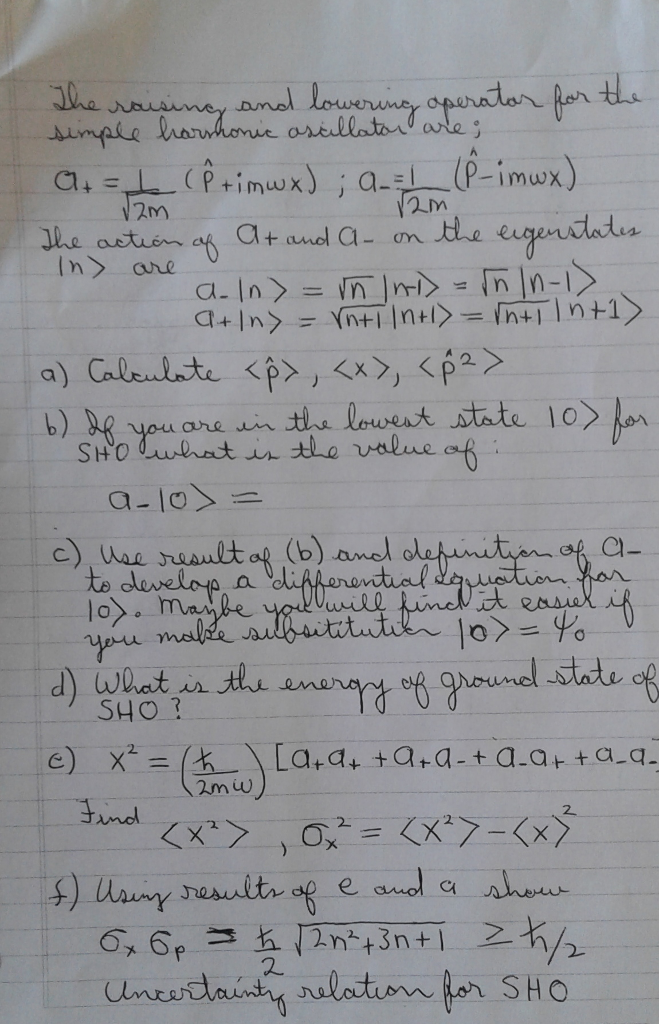 The raising and lowering operator for the
simple harmonic oscillator are;
a₊ = 1/√2m (p̂ + imωx) ; a₋ = 1/√2m (p̂ - imωx)
The action of a₊ and a₋ on the eigenstates
|n> are
a₋|n> = √n |n-1> = √n |n-1>
a₊|n> = √n+1 |n+1> = √n+1 |n+1>
a) Calculate <p̂>, <x>, <p̂²>
b) If you are in the lowest state |0> for
SHO what is the value of :
a₋|0> =
c) Use result of (b) and definition of a₋
to develop a differential equation for
|0>. Maybe you will find it easier if
you make subsititution |0> = ψ₀
d) What is the energy of ground state of
SHO ?
e) x² = (ħ/2mω) [a₊a₊ + a₊a₋ + a₋a₊ + a₋a₋]
Find <x²> , σₓ² = <x²> - <x>²
f) Using results of e and a show
σₓ σₚ = ħ/2 √2n²+3n+1 ≥ ħ/2
Uncertainty relation for SHO